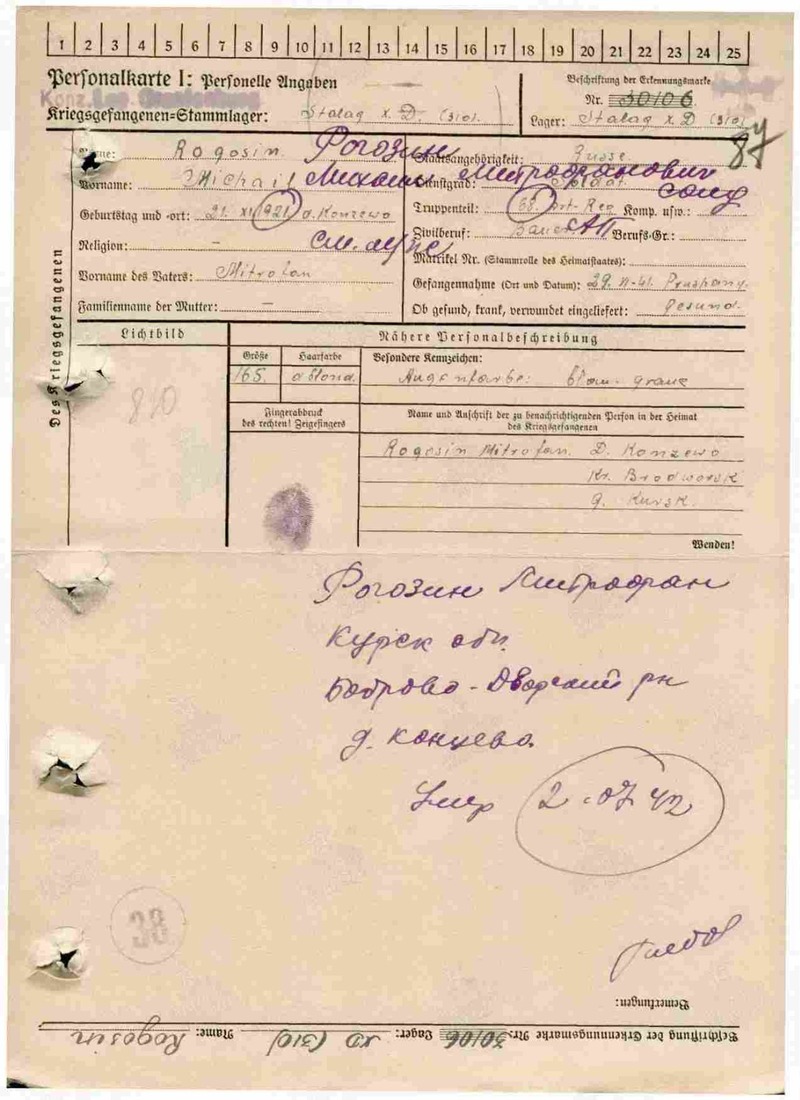 1 2 3 4 5 6 7 8 9 10 11 12 13 14 15 16 17 18 19 20 21 22 23 24 25
Personalkarte I: Personelle Angaben
Beschriftung der Erkennungsmarke
Nr. 30106
Kriegsgefangenen=Stammlager: Stalag X.D. (310)
Lager: Stalag X.D (310)
Rogosin Рогозин
Staatsangehörigkeit: Russe
Vorname: Michail Михаил Митрофанович
Dienstgrad: Soldat солд
Geburtstag und =ort: 21. XI. 1921 d. Konzewo
Truppenteil: 68. Komp. usw.:
Religion: –
см. лупс
Zivilberuf: Bauer Berufs=Gr.:
Matrikel Nr. (Stammrolle des Heimatstaates):
Vorname des Vaters: Mitrofan
Gefangennahme (Ort und Datum): 29. VI-41. Prushany
Familienname der Mutter: –
Ob gesund, krank, verwundet eingeliefert: gesund.
Des Kriegsgefangenen
Lichtbild
Nähere Personalbeschreibung
Größe
Haarfarbe
Besondere Kennzeichen:
165. blond.
Augenfarbe: blau-graue
810
Fingerabdruck
des rechten! Zeigefingers
Name und Anschrift der zu benachrichtigenden Person in der Heimat
des Kriegsgefangenen
Rogosin Mitrofan. D. Konzewo
Kr. Brodworsk
g. Kursk.
Wenden!
Рогозин Митрофан
Курск обл.
Боброво-Дворский рн
д. Концева
Умер 2.07 42
38
Bemerkungen:
Beschriftung der Erkennungsmarke Nr. 30106 Lager: XD (310) Name: Rogosin